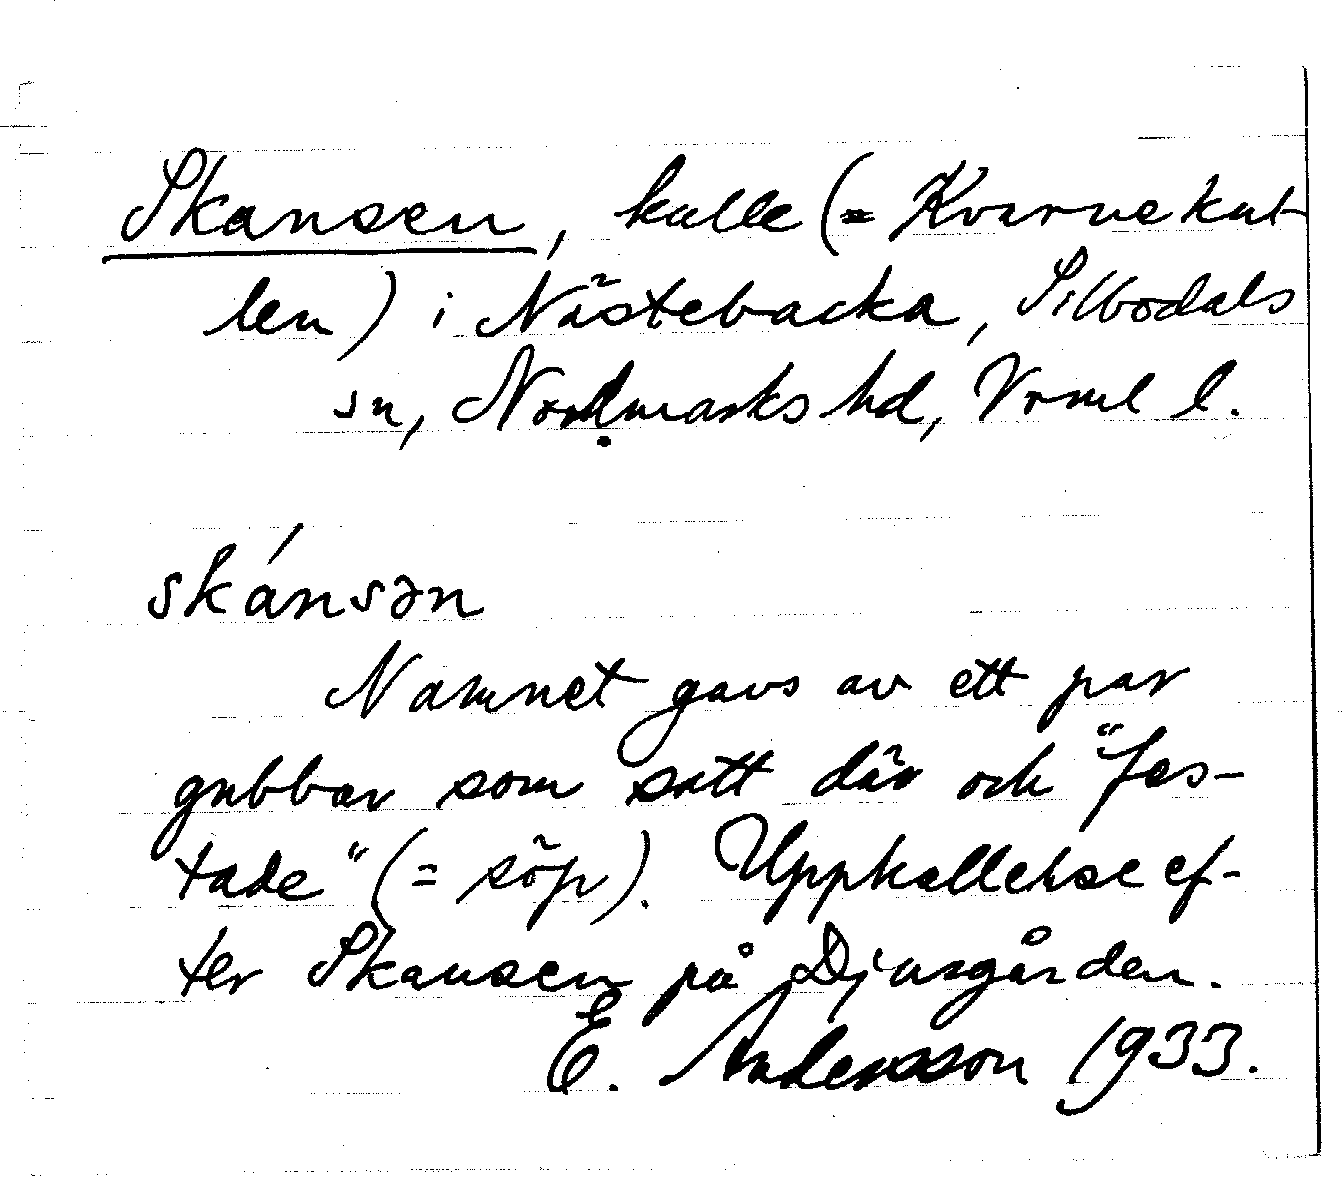 Skansen, kulle (= Kvarnekul-
len) i Nästebacka, Silbodals
sn, Nordmarks hd, Vrml l.
skánsən
Namnet gavs av ett par
gubbar som satt där och "fes-
tade" (= söp). Uppkallelse ef-
ter Skansen på Djurgården.
E. Andersson 1933.